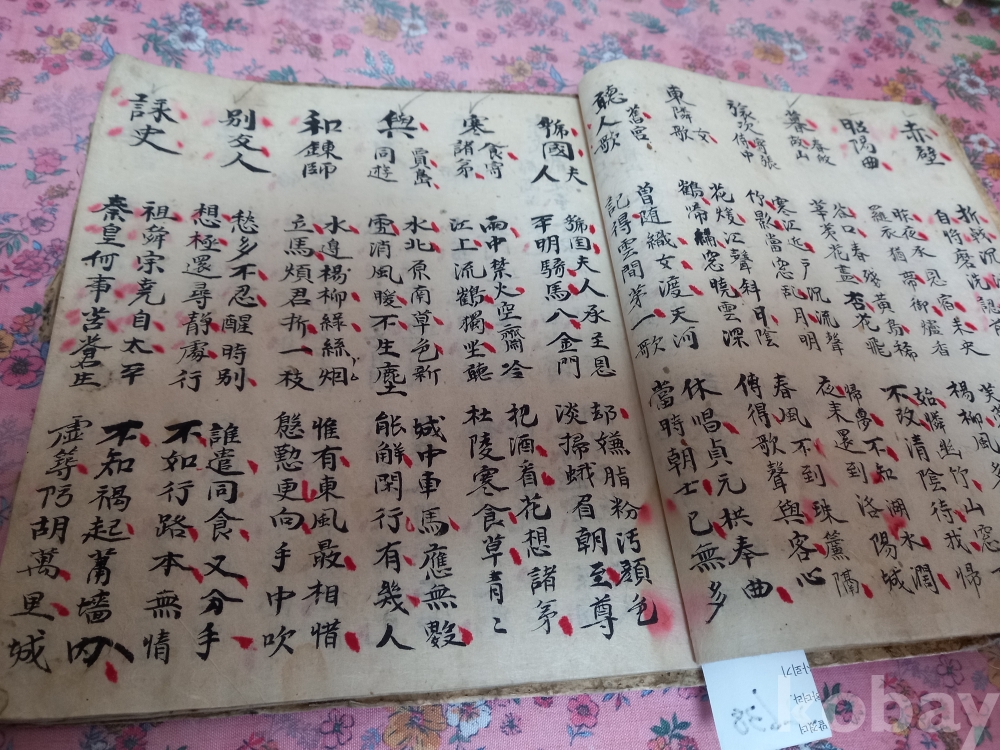 赤壁
自將磨洗認
昭陽曲
昨夜承恩宿未央
羅衣猶帶御爐香
楊柳風多
暮春歸故山
谷口春殘黃鳥稀
莘荑花盡杏花飛
始憐幽竹山窓下
不改清陰待我歸
張侍中
寒江近戶沉流聲
竹影當窓乱月明
歸夢不知湖水濶
夜来還到洛陽城
東隣歌女
花煖江聲斜日陰
鶴啼綉窓曉雲深
春風不到珠簾隔
傳得歌聲與客心
聽舊宮人歌
曾随織女渡天河
記得雲間苐一歌
休唱貞元拱奉曲
當時朝士已無多
虢國夫人
虢国夫人承主恩
平明騎馬入金門
却嫌脂粉汚顔色
淡掃蛾眉朝至尊
寒食寄諸弟
雨中禁火空齋冷
江上流鶴獨坐聽
杷酒看花想諸苐
杜陵寒食草青〻
與賈島同遊
水北原南草色新
雪消風暖不生塵
城中車馬應無數
能解閑行有幾人
和鍊師
水邊楊柳綠絲烟
立馬煩君折一枝
惟有東風最相惜
慇懃更向手中吹
別友人
愁多不忍醒時別
想極還尋靜處行
誰遣同食又分手
不如行路本無情
詠史
祖舜宗尧自太平
秦皇何事苦蒼生
不知禍起萧墻内
虛築防胡萬里城
kobay